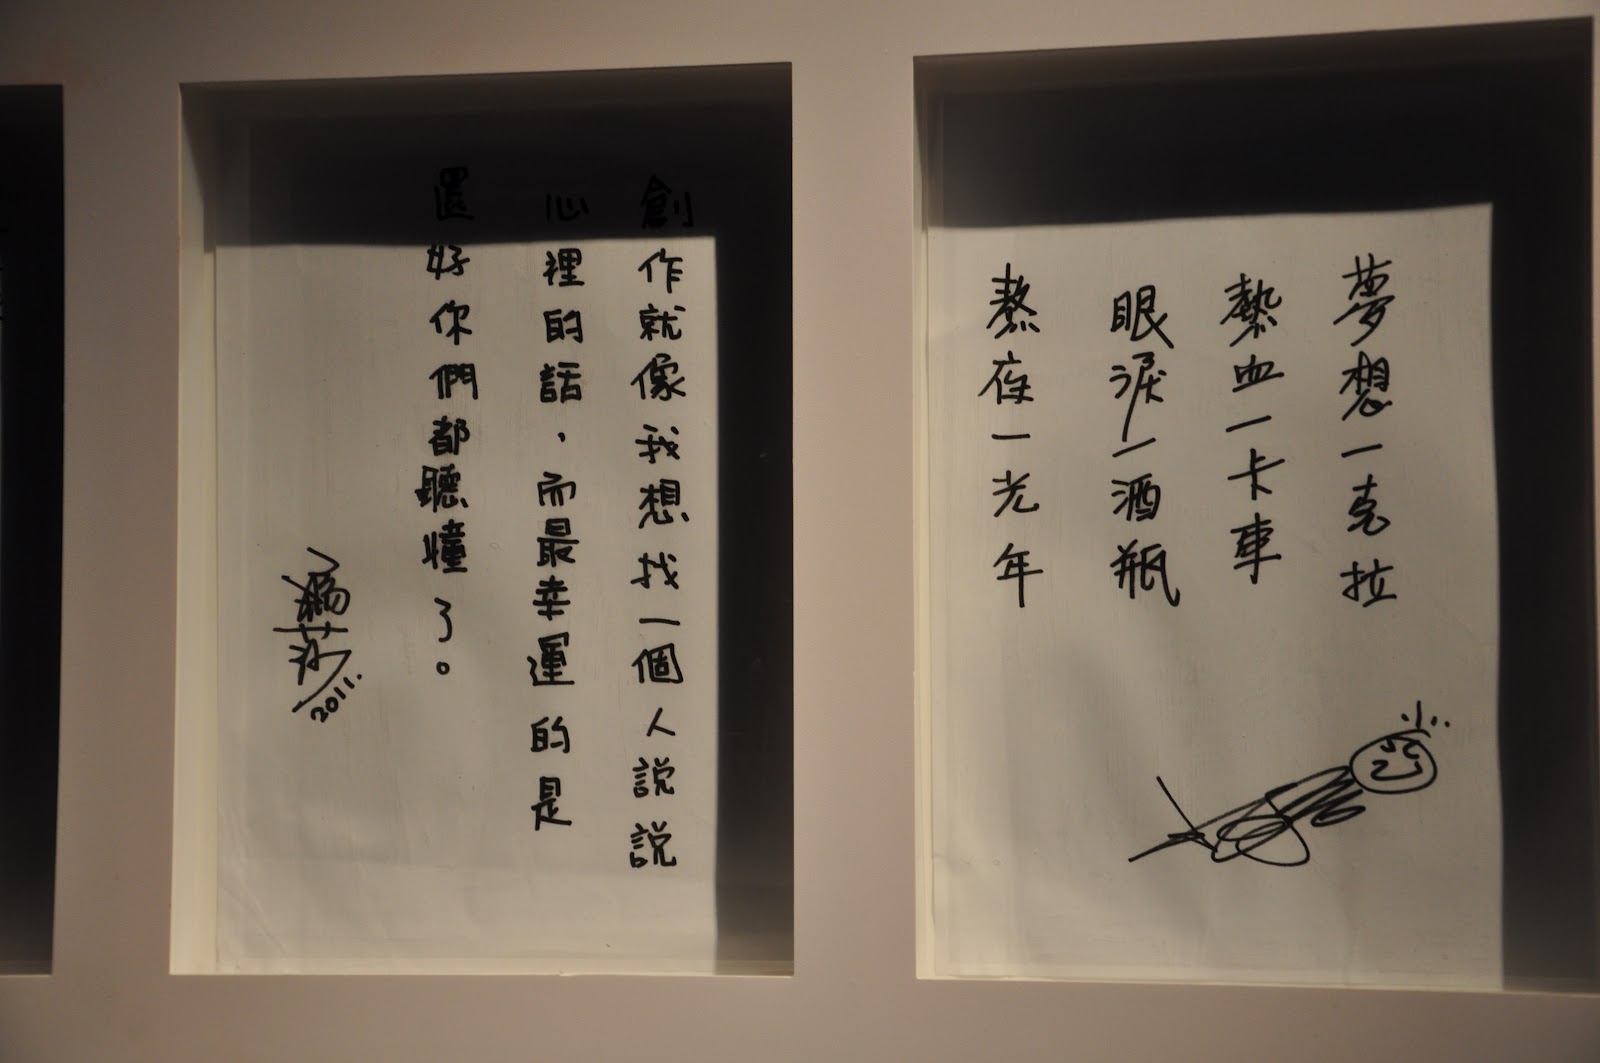 夢想一克拉
熱血一卡車
眼淚一酒瓶
熬夜一光年
創作就像我想找一個人說說
心裡的話，而最幸運的是
還好你們都聽懂了。
瑪莎
2011.